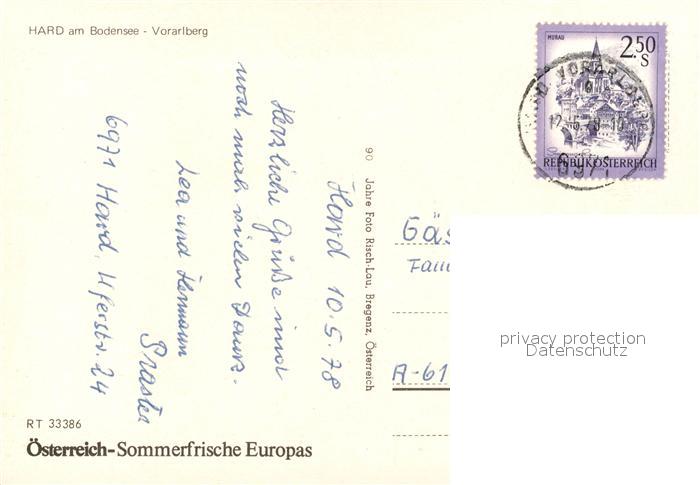 HARD am Bodensee - Vorarlberg
MURAU
2.50
S
12.5.78-10
6971
REPUBLIK ÖSTERREICH
Hard 10.5.78
Herzliche Grüße und
noch mal vielen Dank.
Lea und Hermann
6971 Hard, Uferstr. 24
90 Jahre Foto Risch-Lau, Bregenz, Österreich
Gäs
Fam
A-61
privacy protection
Datenschutz
RT 33386
Österreich-Sommerfrische Europas